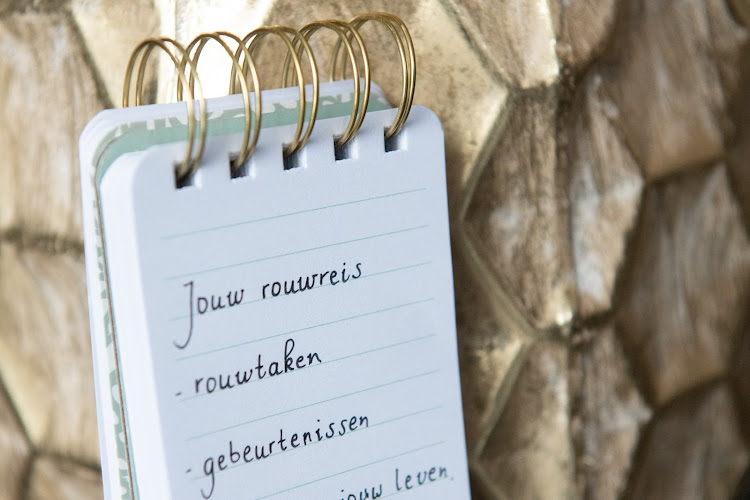 Jouw rouwreis
- rouwtaken
- gebeurtenissen
jouw leven.